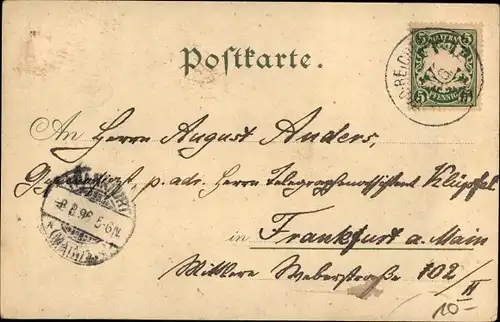 Postkarte.
BAYERN
5 5
PFENNIG
An Herrn August Anders,
p. adr. Herrn Telegraphenassistent Klüpfel
in Frankfurt a. Main
Mittlere Weberstraße 102/II
FRANKFURT
8.8.98. 5-6N.
* (MAIN)
10-